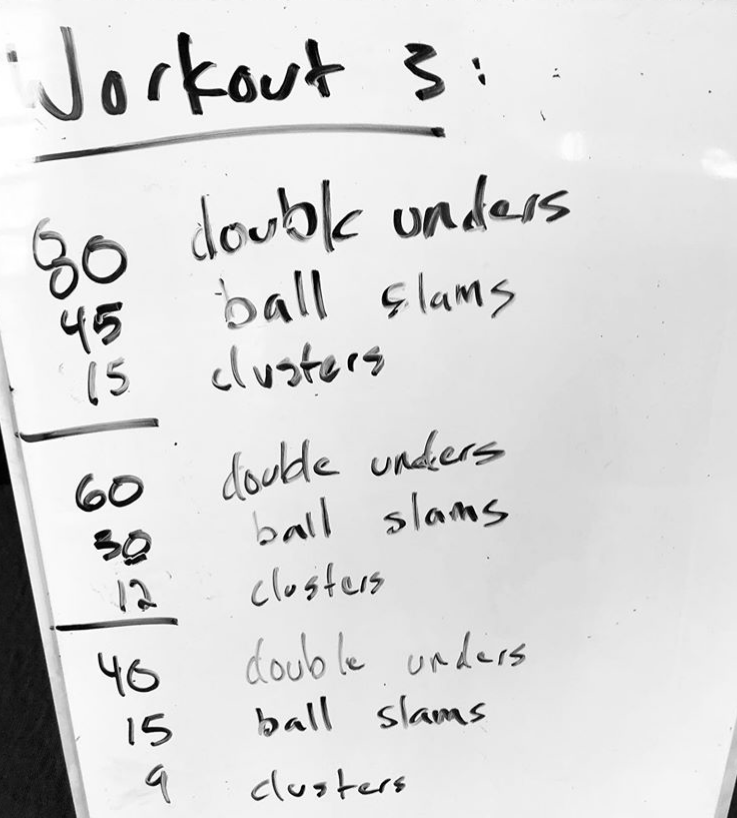 Workout 3:
80 double unders
45 ball slams
15 clusters
60 double unders
30 ball slams
12 clusters
40 double unders
15 ball slams
9 clusters